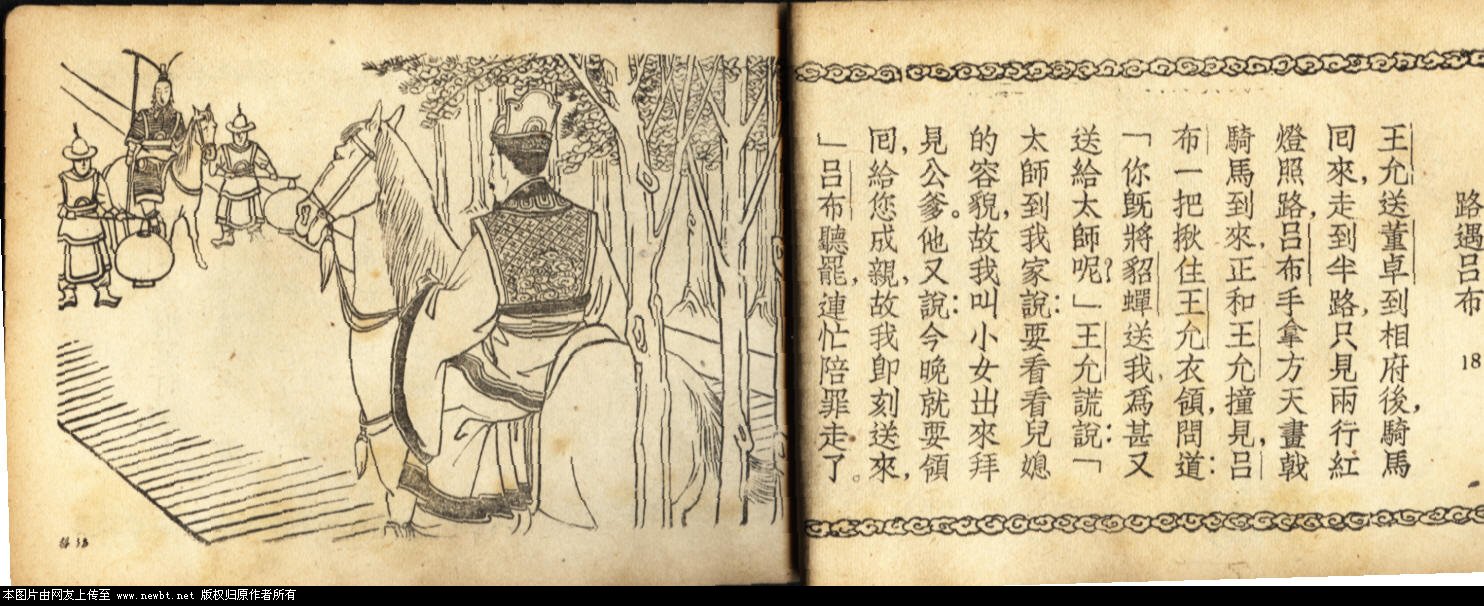 路遇呂布 18
王允送董卓到相府後，騎馬
回來，走到半路，只見兩行紅
燈照路，呂布手拿方天畫戟
騎馬到來，正和王允撞見，呂
布一把揪住王允衣領，問道：
「你旣將貂蟬送我，爲甚又
送給太師呢？」王允謊說：「
太師到我家說：要看看兒媳
的容貌，故我叫小女出來拜
見公爹。他又說：今晚就要領
囘，給您成親，故我即刻送來，
」呂布聽罷，連忙陪罪走了。
本图片由网友上传至 www.newbt.net 版权归原作者所有